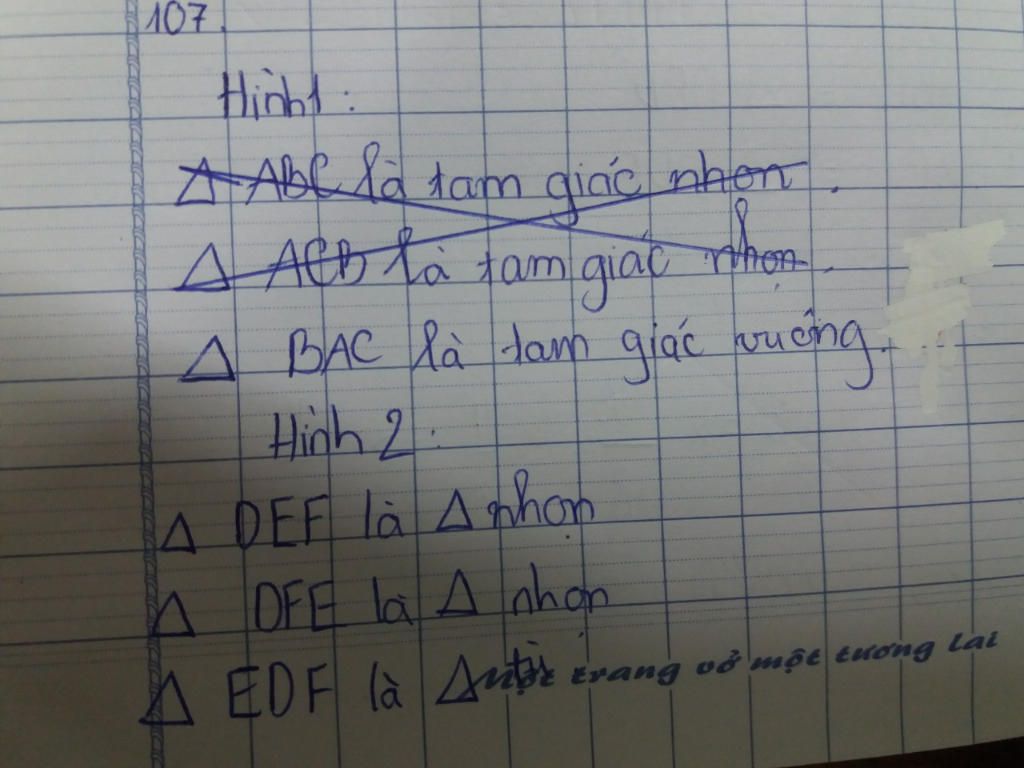 107.
Hình 1 :
Δ ABC là tam giác nhọn .
Δ ACB là tam giác nhọn .
Δ BAC là tam giác vuông.
Hình 2 :
Δ DEF là Δ nhọn
Δ DFE là Δ nhọn
Δ EDF là Δ tù
Một trang vở một tương lai